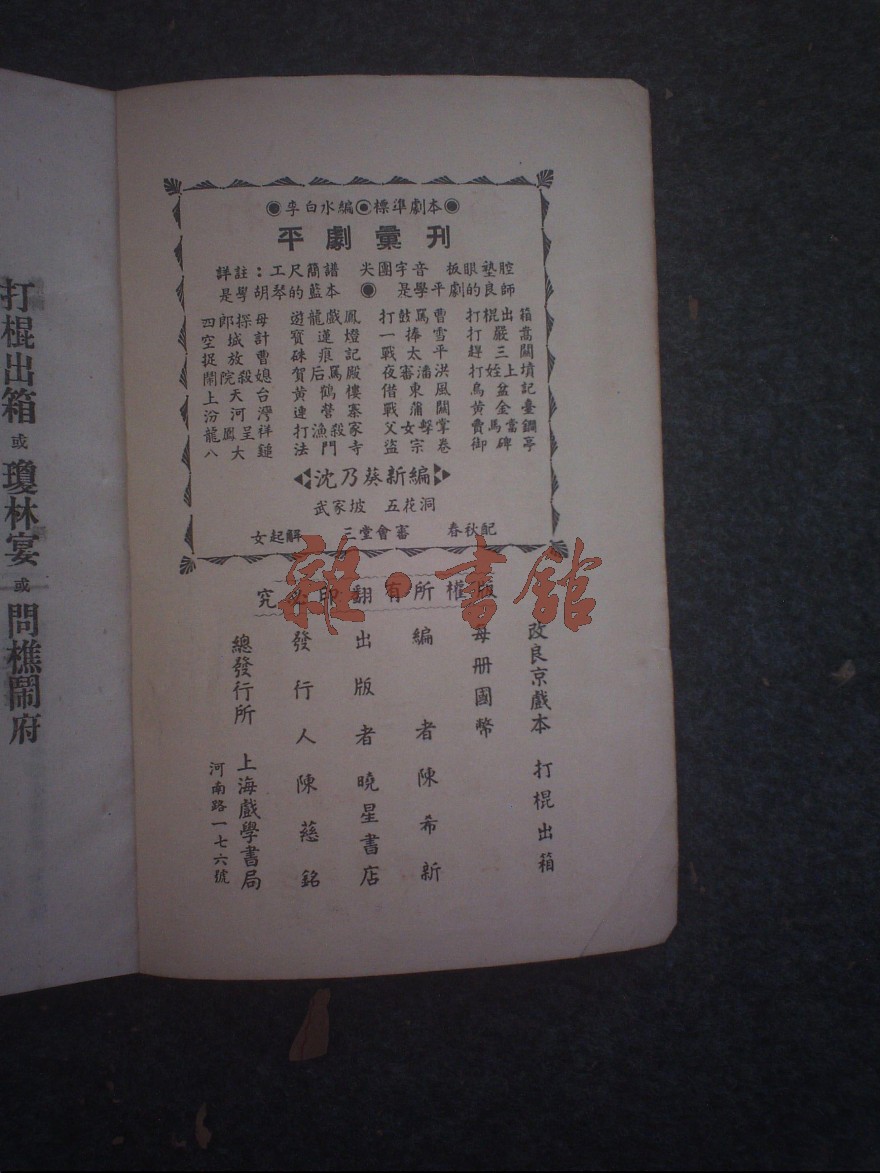 打棍出箱 或 瓊林宴 或 問樵鬧府
◉李白水編◉標準劇本◉
平劇彙刊
詳註：工尺簡譜 尖團字音 板眼墊腔
是學胡琴的藍本 ◉ 是學平劇的良師
四郎探母 遊龍戲鳳 打鼓罵曹 打棍出箱
空城計 寶蓮燈 一捧雪 打嚴嵩
捉放曹 硃痕記 戰太平 趕三關
鬧院殺媳 賀后罵殿 夜審潘洪 打姪上墳
上天台 黃鶴樓 借東風 烏盆記
汾河灣 連營寨 戰蒲關 黃金臺
龍鳳呈祥 打漁殺家 父女擊掌 賣馬當鐧
八大鎚 法門寺 盜宗卷 御碑亭
沈乃葵新編
武家坡 五花洞
女起解 三堂會審 春秋配
版權所有翻印必究
雜·書館
改良京戲本 打棍出箱
每册國幣
編者陳希新
出版者曉星書店
發行人陳慈銘
總發行所 上海戲學書局
河南路一七六號